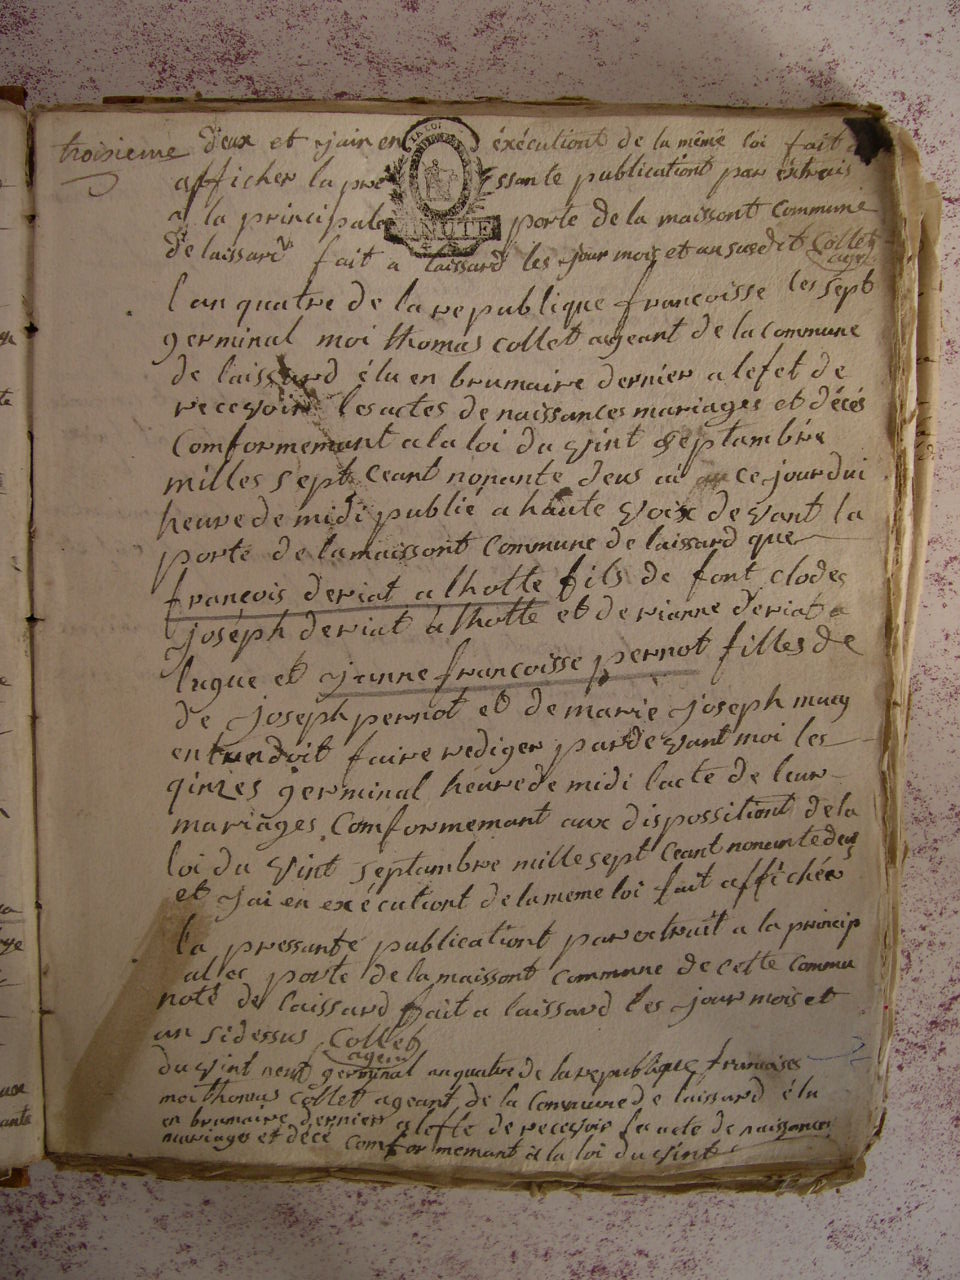 troisieme
deux et jai en exécutiont de la même loi fait
afficher la pressante publicationt par extrais
a la principale porte de la maissont Commune
de laissard fait a laissard les jour mois et an susdit Collet
agent
LA LOI
MINUTE
l'an quatre de la republique francoisse les sept
germinal moi thomas collet ageant de la Commune
de laissard élu en brumaire dernier a lefet de
recevoir les actes de naissances mariages et décés
Comformemant a la loi du vint septambre
milles sept ceant nonante deus ai ce jourdui
heure de midi publié a haute voix devant la
porte de la maissont Commune de laissard que
francois deriat a lhotte fils de font clodes
joséph deriat a lhotte et de rianne deriat a
lugue et janne francoisse pernot filles de
de joseph pernot et de marie joseph mucy
entandoit faire rediger pardevant moi les
qinzes germinal heure de midi lacte de leur
mariages Comformemant aux dispossitiont de la
loi du vint septambre mille sept ceant nonante deus
et jai en exécutiont de la meme loi fait afficher
la pressante publicationt par extrait a la princip
ales porte de la maissont commune de cette commu
noté de laissard fait a laissard les jour mois et
an sidessus Collet
agent
du vint neuf germinal an quatre de la republique francaises
moi thomas Collet ageant de la Commune de laissard élu
en brumaire dernier a leffe de recevoir la acte de naissances
mariages et décé Comformemant a la loi du vint